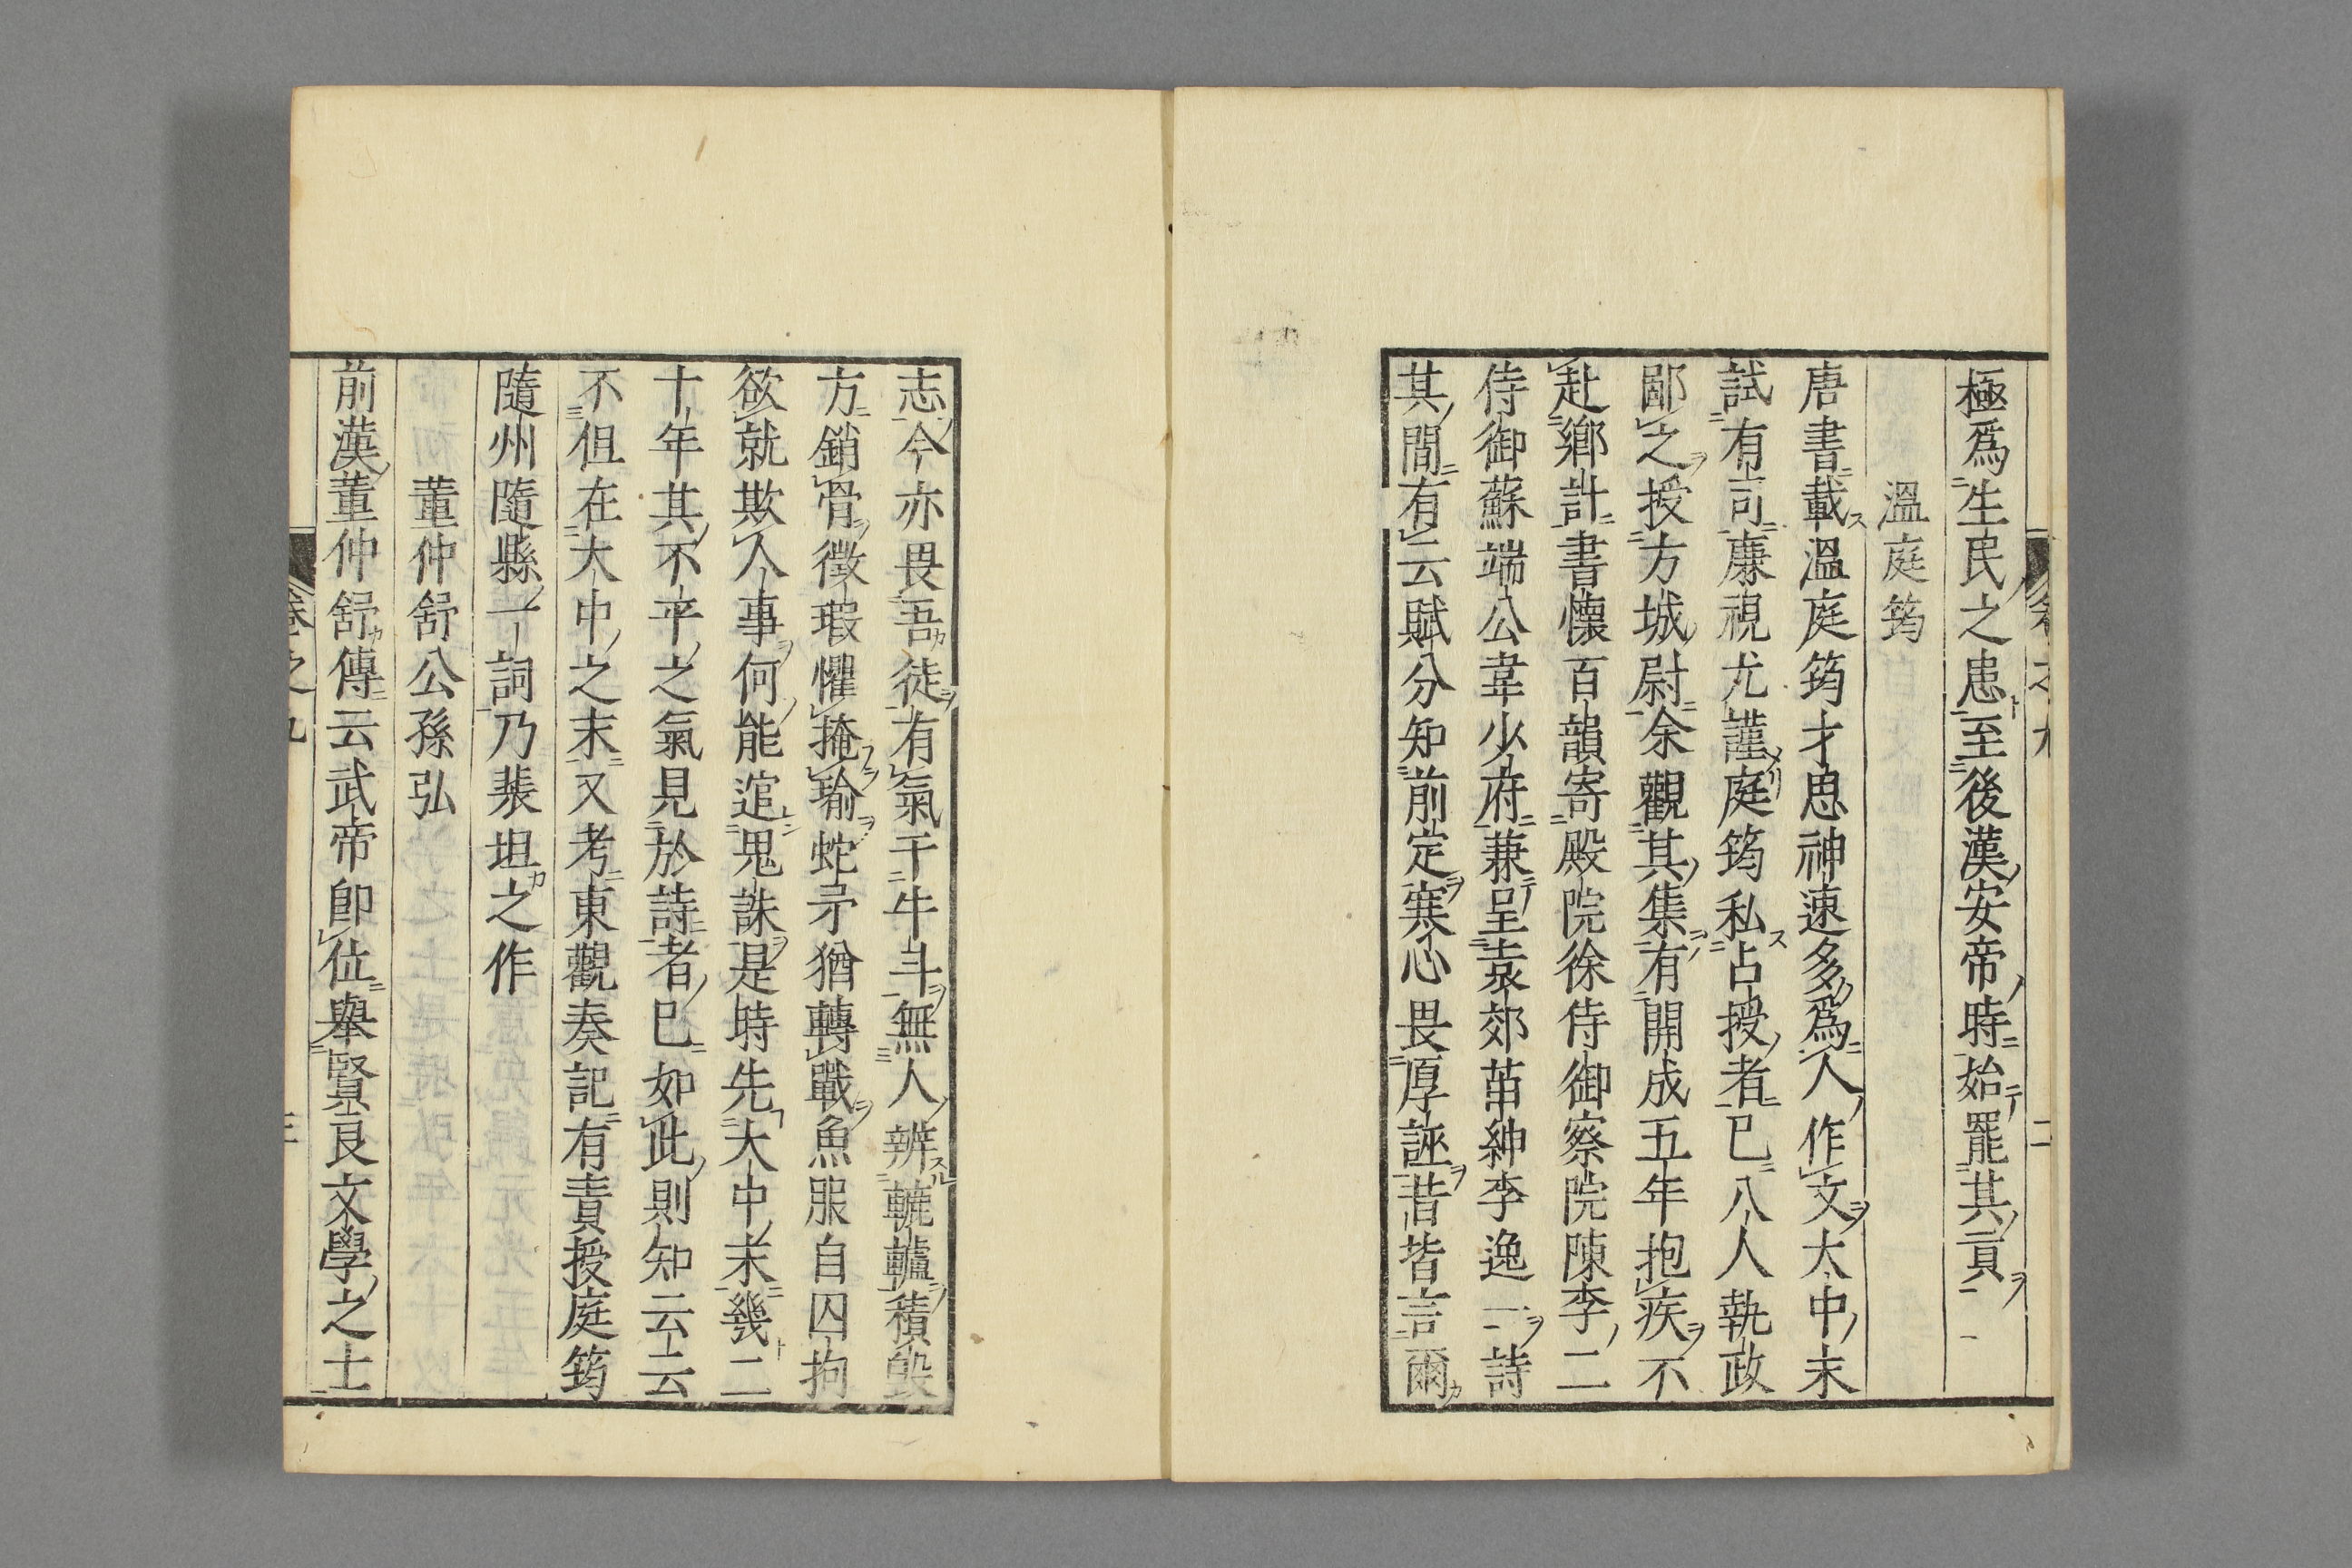 極為生民之患至後漢安帝時始罷其貢
溫庭筠
唐書載溫庭筠才思神速多為人作文大中末
試有司廉視尤謹庭筠私占授者已八人執政
鄙之授方城尉余觀其集有開成五年抱疾不
赴鄉計書懷百韻寄殿院徐侍御察院陳李二
侍御蘇端公韋少府兼呈袁郊苗紳李逸一詩
其間有云賦分知前定寒心畏厚誣昔皆言爾
志今亦畏吾徒有氣干牛斗無人辨轆轤積毀
方銷骨徵瑕懼掩瑜蛇矛猶轉戰魚服自囚拘
欲就欺人事何能逭鬼誅是時先大中末幾二
十年其不平之氣見於詩者已如此則知云云
不但在大中之末又考東觀奏記有責授庭筠
隨州隨縣一詞乃裴坦之作
董仲舒公孫弘
前漢董仲舒傳云武帝即位舉賢良文學之士
卷之九